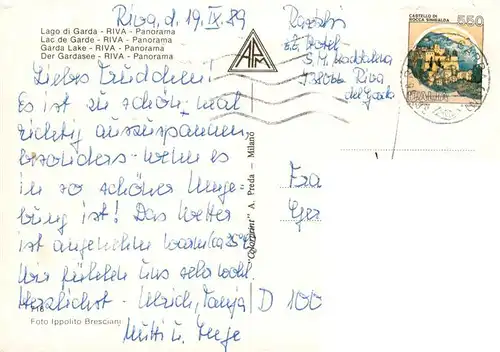 Riva, d. 19.IX.89
Lago di Garda - RIVA - Panorama
Lac de Garde - RIVA - Panorama
Garda Lake - RIVA - Panorama
Der Gardasee - RIVA - Panorama
Liebes Trudchen!
Es ist zu schön, mal
richtig auszuspannen
besonders wenn es
in so schöner Umge-
bung ist! Das Wetter
ist angenehm warm (ca 25°C)
Wir fühlen uns sehr wohl.
Herzlichst - Ulrich, Tanja
Mutti u. Inge
Foto Ippolito Bresciani
"Colorprint" A. Preda — Milano
APM
Hotel
S. M. Maddalena
38066 Riva
del Garda
CASTELLO DI
ROCCA SINIBALDA
550
ITALIA
Fra
Ger
D 100